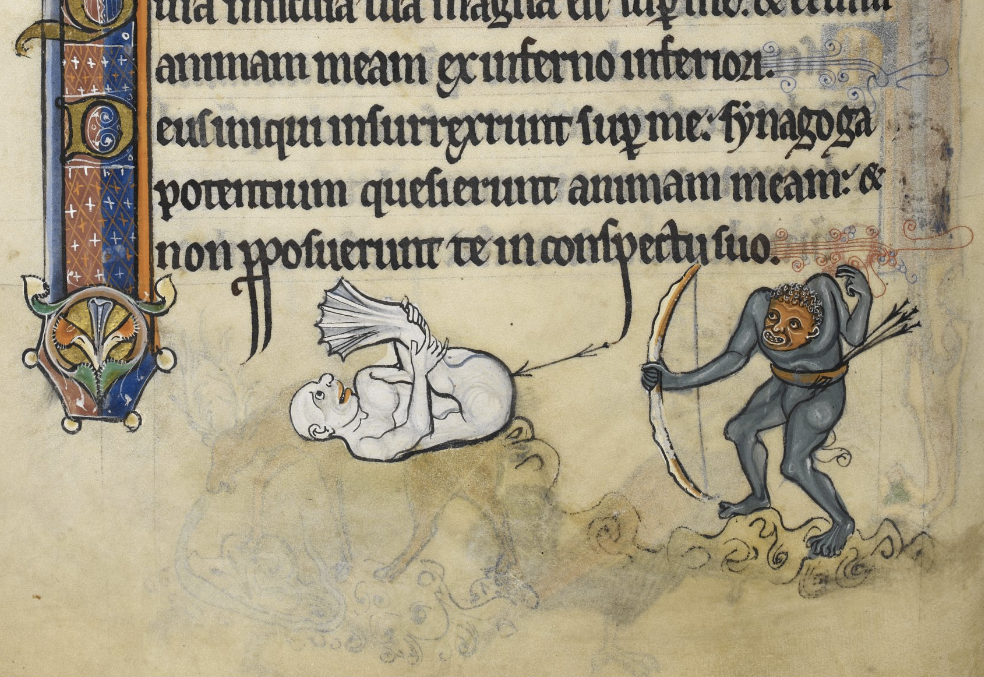 tua magna est suꝑ me. & eruisti
animam meam ex inferno inferiori.
Deus iniqui insurrexerunt suꝑ me: synagoga
potentium quesierunt animam meam: &
non ꝓposuerunt te in conspectu suo.